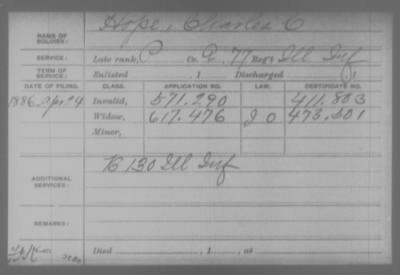 NAME OF SOLDIER: Hope, Charles C
SERVICE: Late rank, P Co. G, 77 Reg't Ill Inf
TERM OF SERVICE: Enlisted , 1 Discharged
DATE OF FILING. CLASS. APPLICATION NO. LAW. CERTIFICATE NO.
1886 Apr 24 Invalid, 571,290 411,803
Widow, 617,476 J O 473,501
Minor,
ADDITIONAL SERVICES: K 130 Ill Inf
REMARKS:
Died , 1 , at